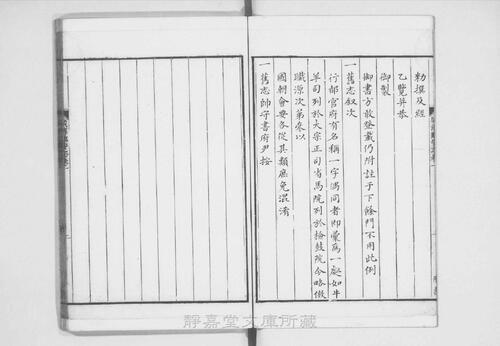 勅撰及經
乙覽并恭
御製
御書方敢登載仍附註于下餘門不用此例
一舊志叙次
行都官府有名稱一字偶同者即彙爲一處如牛
羊司列於大宗正司省馬院列於檢鼓院今略倣
職源次第參以
國朝會要各從其類庶免混淆
一舊志帥守書府尹按
靜嘉堂文庫所藏